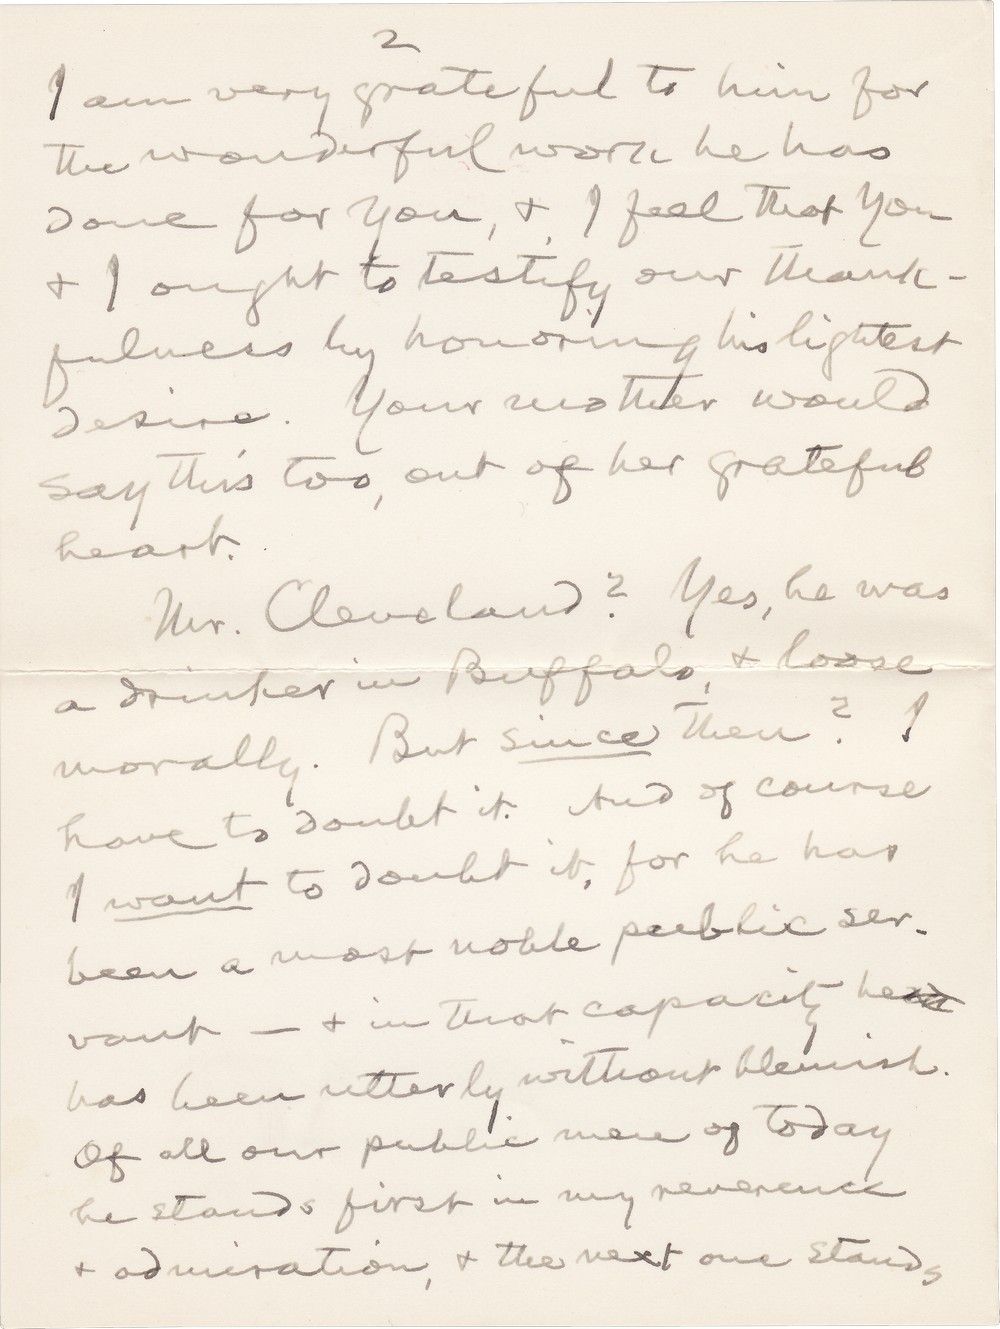 2
I am very grateful to him for
the wonderful work he has
done for you, & I feel that you
& I ought to testify our thank-
fulness by honoring his lightest
desire. Your mother would
say this too, out of her grateful
heart.
Mr. Cleveland? Yes, he was
a drinker in Buffalo, & loose
morally. But since then? I
have to doubt it. And of course
I want to doubt it, for he has
been a most noble public ser-
vant — & in that capacity he
has been utterly without blemish.
Of all our public men of today
he stands first in my reverence
& admiration, & the next one stands